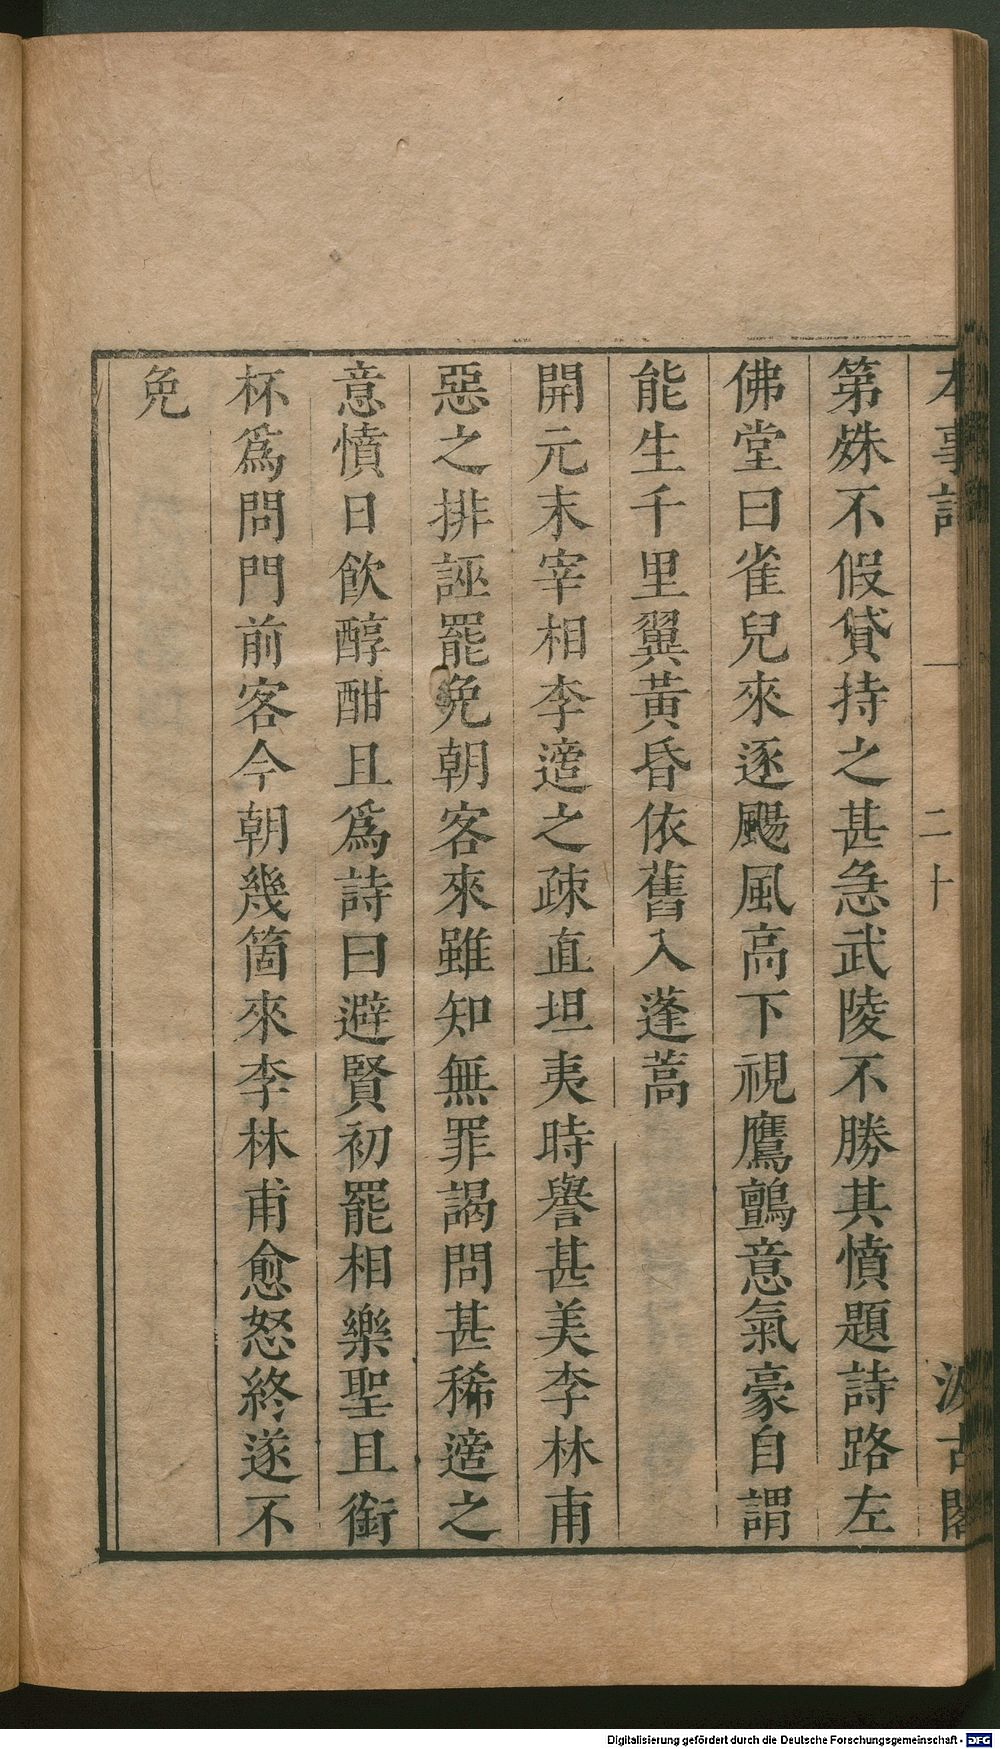 本事詩 一 二十 汲古閣
第殊不假貸持之甚急武陵不勝其憤題詩路左
佛堂曰雀兒來逐颺風高下視鷹鸇意氣豪自謂
能生千里翼黃昏依舊入蓬蒿
開元末宰相李適之疎直坦夷時譽甚美李林甫
惡之排誣罷免朝客來雖知無罪謁問甚稀適之
意憤日飲醇酣且爲詩曰避賢初罷相樂聖且銜
杯爲問門前客今朝幾箇來李林甫愈怒終遂不
免
Digitalisierung gefördert durch die Deutsche Forschungsgemeinschaft - DFG